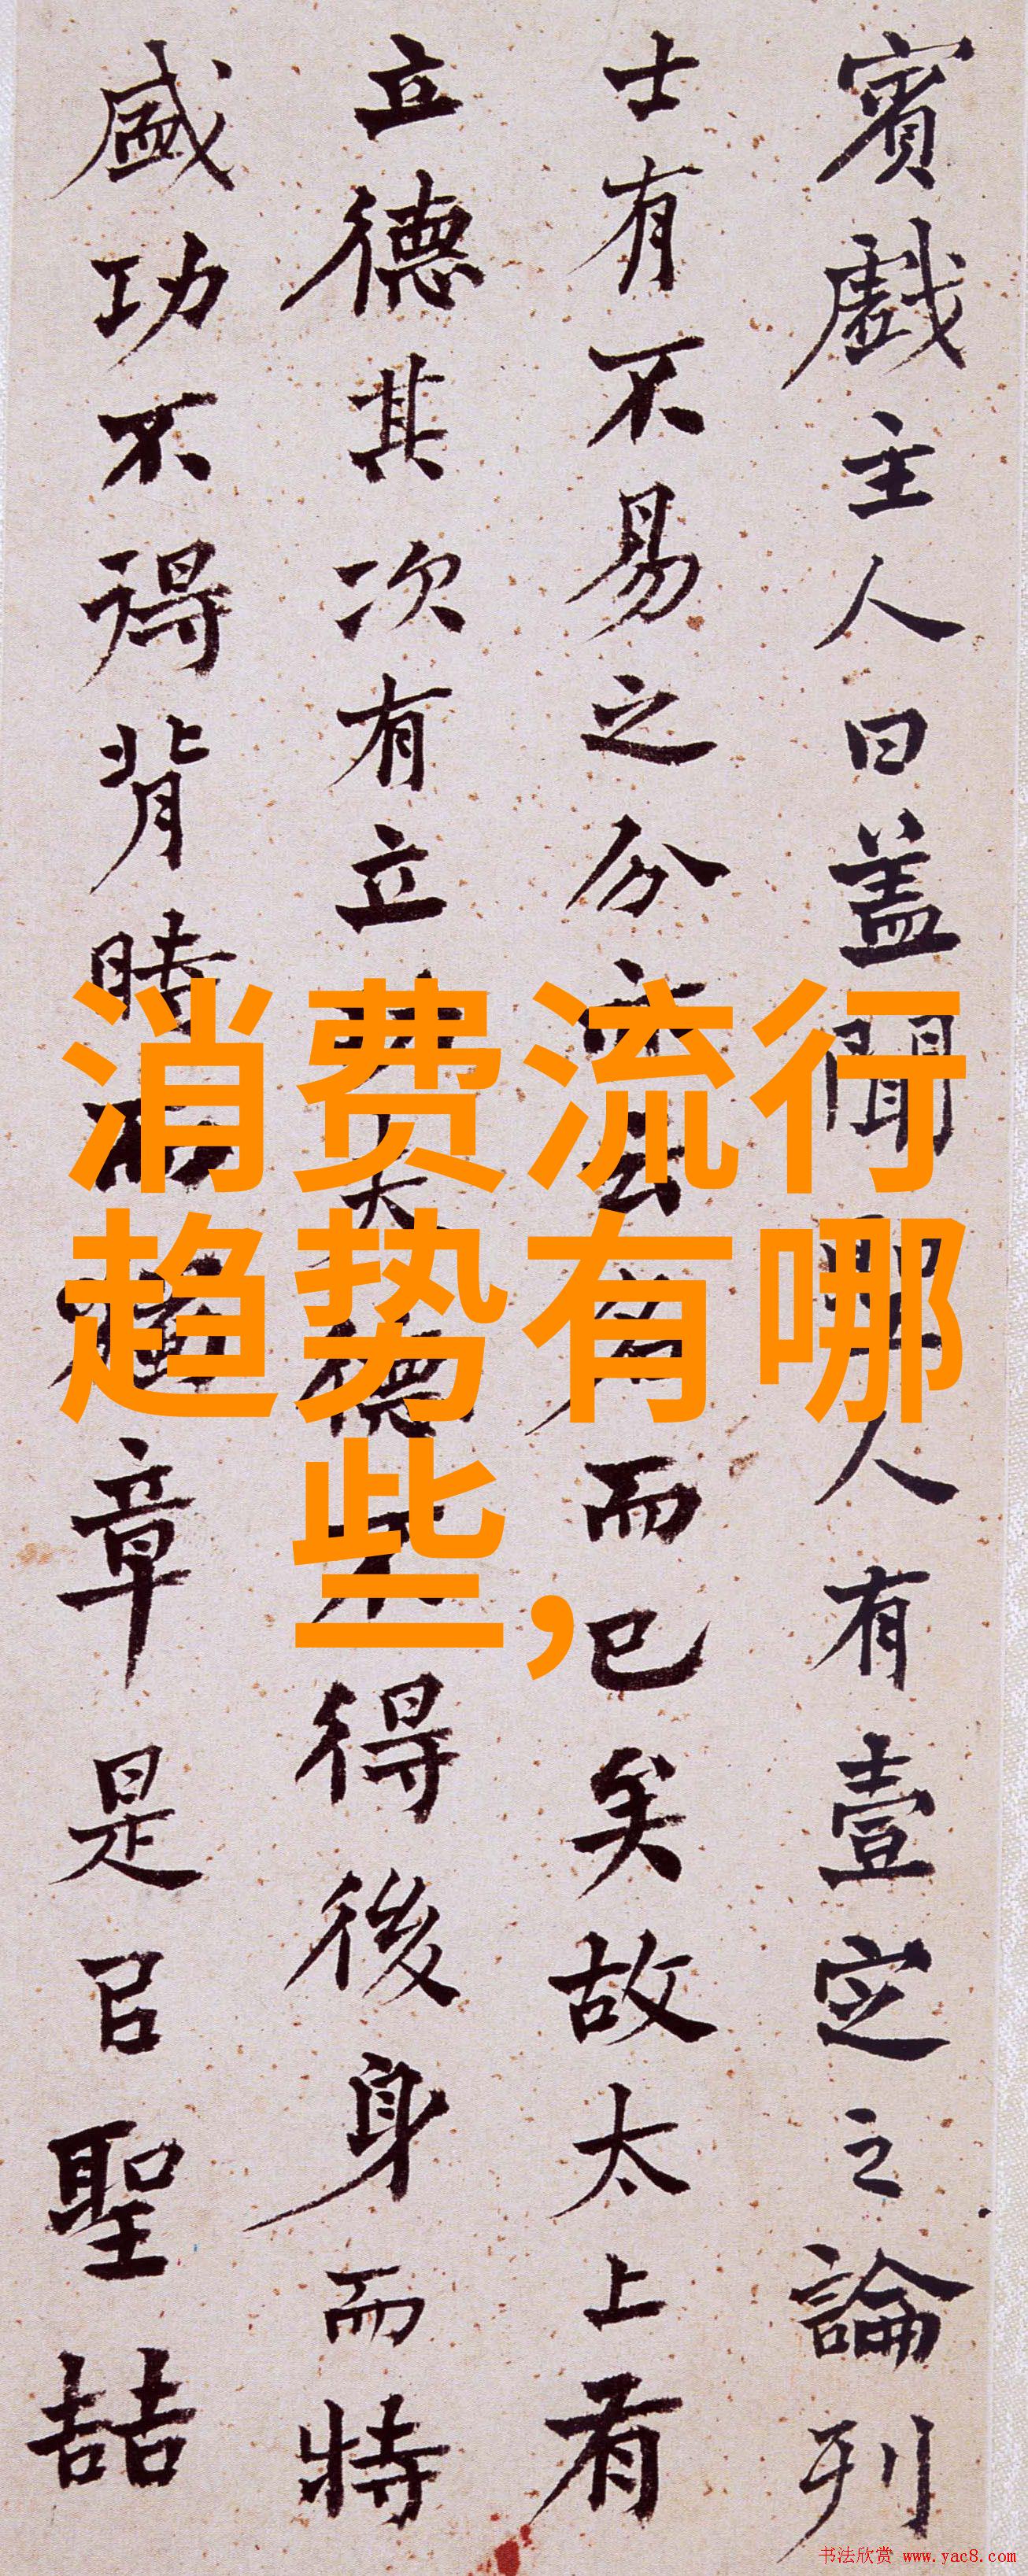 賓戲主人曰盖聞聖人有壹定之論列
士有不易之分亦云名而已矣故太上有
立德其次有立功夫德不得後身而特
盛功不得背時而獨章是吕聖喆
消费流行
趋势有哪
些,
书法欣赏 www.yac8.com